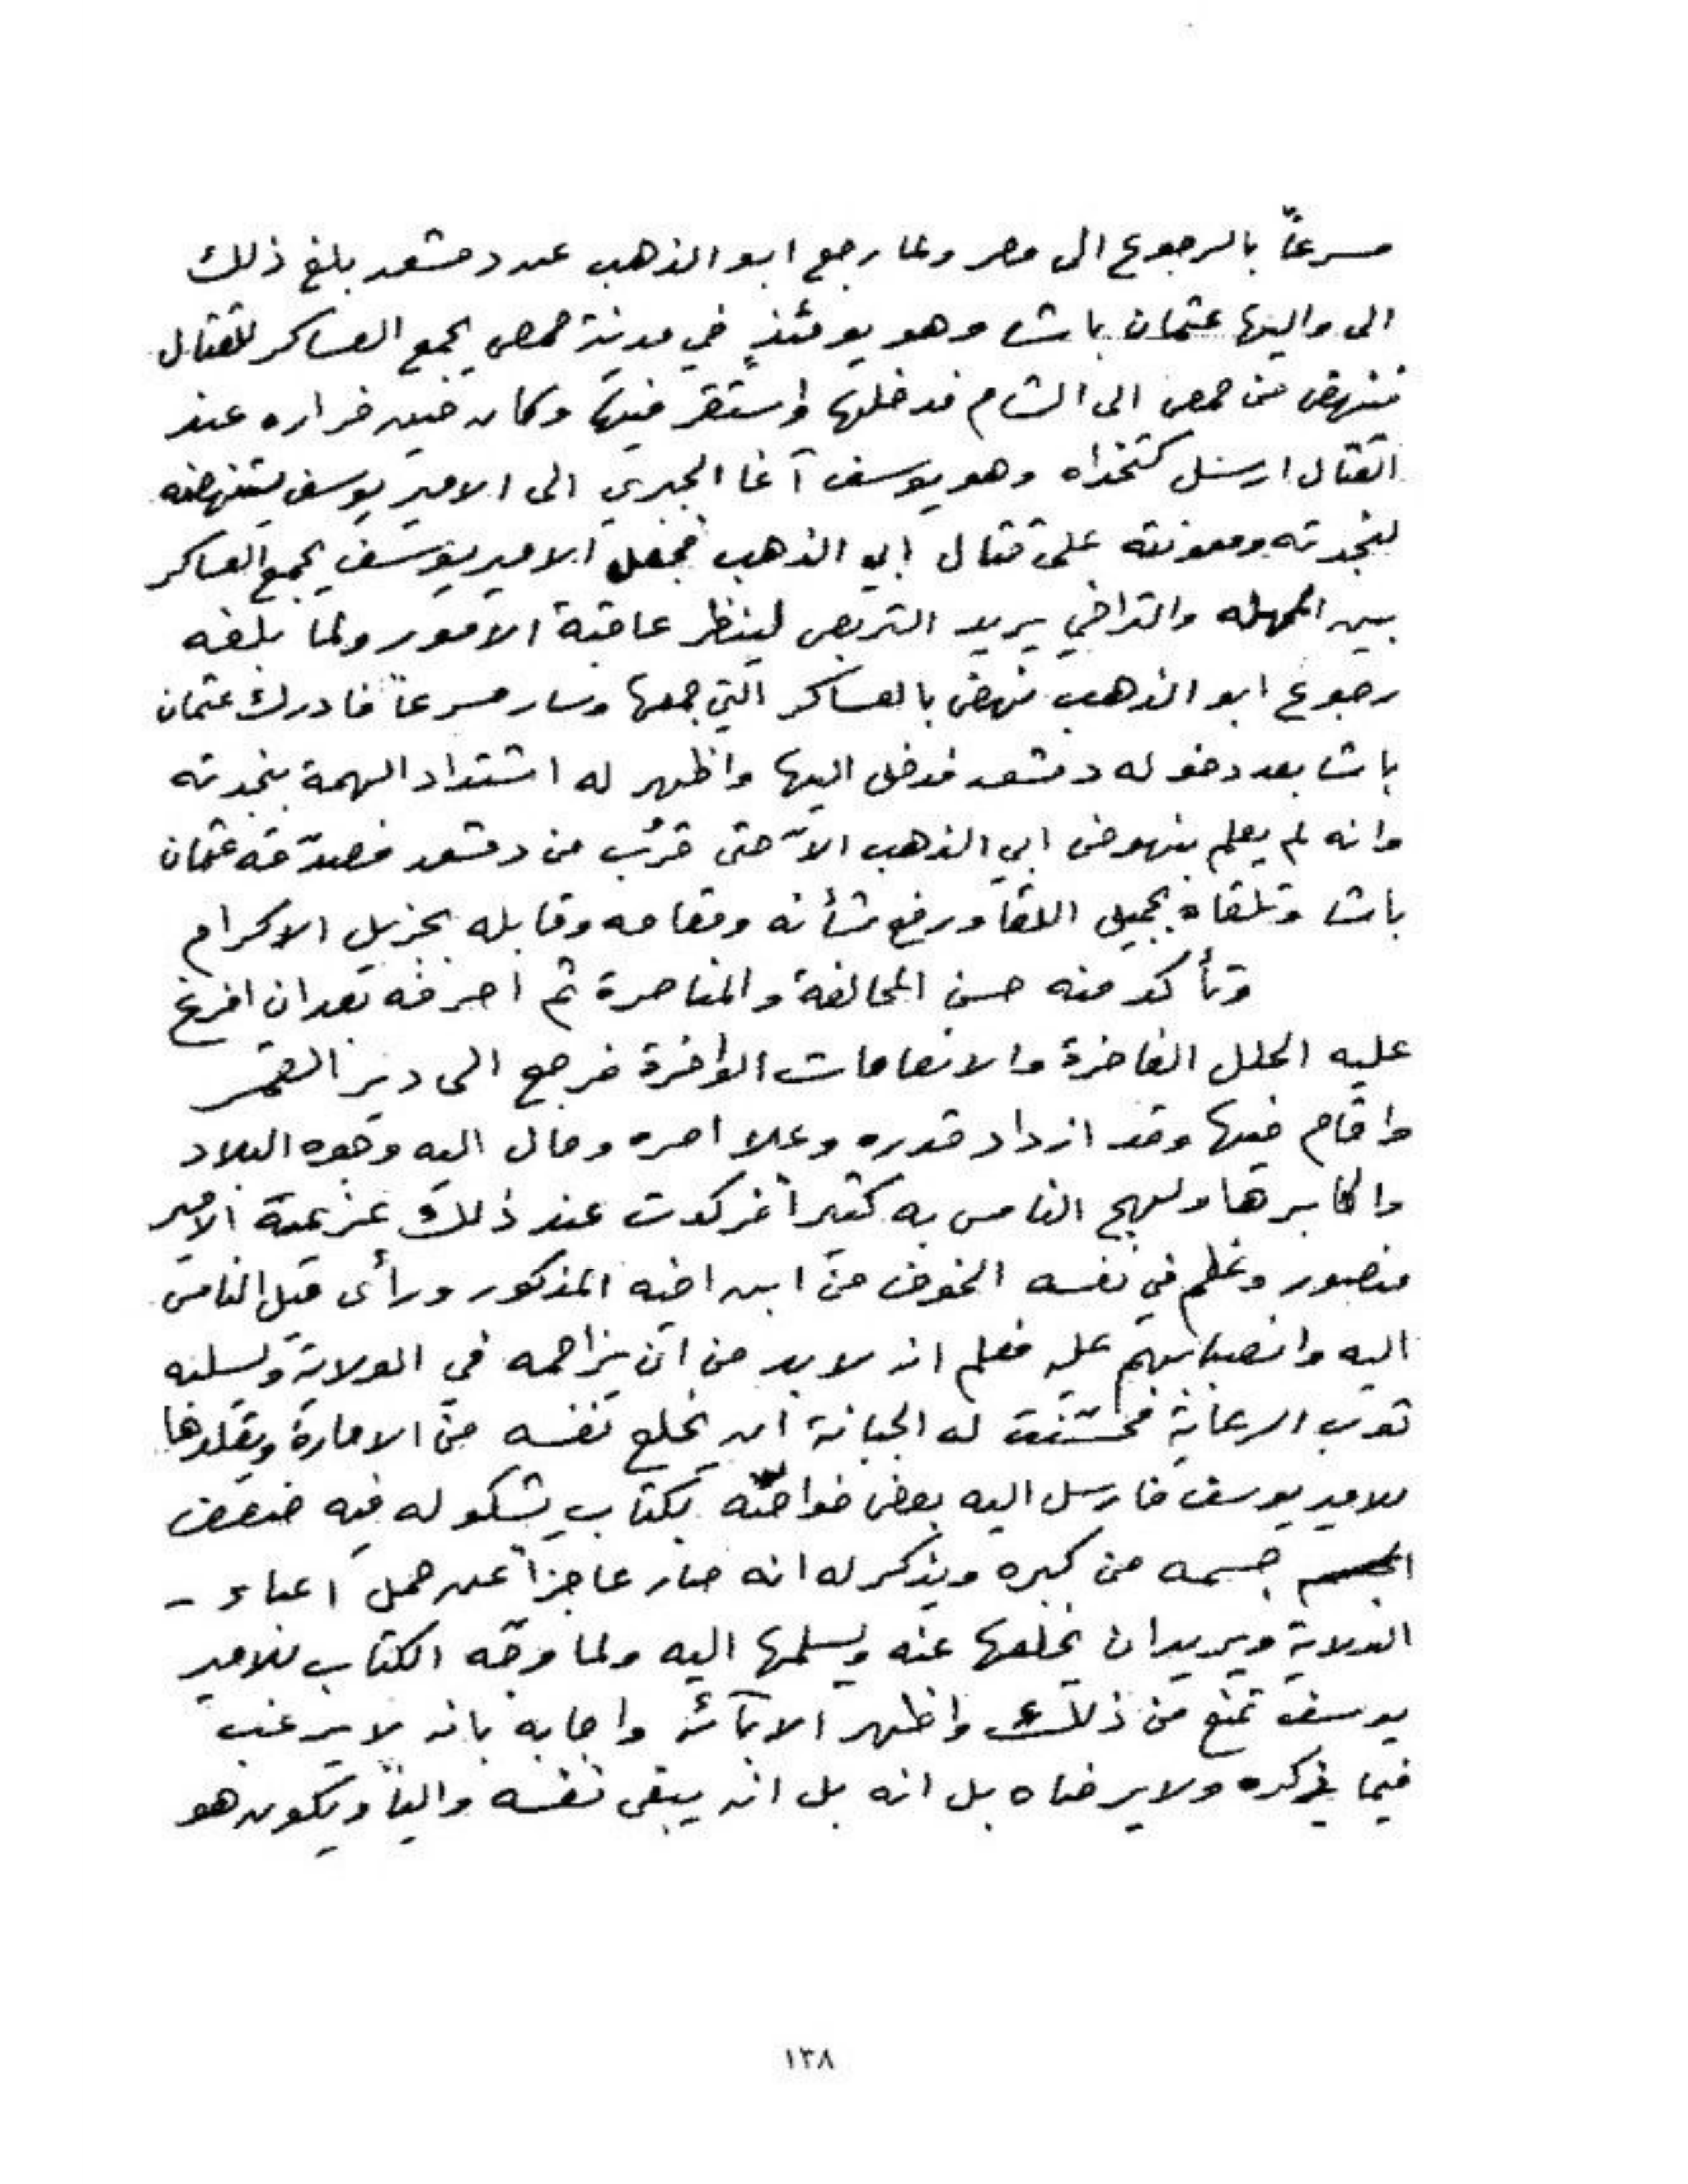 مسرعاً بالرجوع الى مصر ولما رجع ابو الذهب عن دمشق بلغ ذلك
الى واليها عثمان باشا وهو يومئذٍ في مدينة حمص يجمع العساكر للقتال
فنهض من حمص الى الشام فدخلها واستقر فيها وكان حين فراره عند
القتال ارسل كتخداه وهو يوسف آغا الجبري الى الامير يوسف يستنهضه
لنجدته ومعونته على قتال ابي الذهب فجعل الامير يوسف يجمع العساكر
بين المهله والتراخي يريد التربص لينظر عاقبة الامور ولما بلغه
رجوع ابو الذهب نهض بالعساكر التي جمعها وسار مسرعاً فادرك عثمان
باشا بعد دخوله دمشق فدخل اليها واظهر له اشتداد الهمة بنجدته
وانه لم يعلم بنهوض ابي الذهب الاّ حتى قرُب من دمشق فصدّقه عثمان
باشا وتلقاه بجميل اللقا ورفع شأنه ومقامه وقابله بجزيل الاكرام
وتأكد منه حسن المحالفة والمناصرة ثم اصرفه بعد ان افرغ
عليه الحلل الفاخرة والانعامات الوافرة فرجع الى دير القمر
واقام فيها وقد ازداد قدره وعلا امره ومال اليه وجوه البلاد
واكابرها ولهج الناس به كثيراً فركدت عند ذلك عزيمة الامير
منصور وعظم في نفسه الخوف من ابن اخيه المذكور ورأى ميل الناس
اليه وانصبابهم عليه فعلم انه لا بد من ان يزاحمه في الولاية ويسلبه
ثوب الرعاية فحسّنت له الجبانة ان يخلع نفسه من الامارة ويقلدها
للامير يوسف فارسل اليه بعض خواصّه بكتاب يشكو له فيه ضعف
جسمه من كبره ويذكر له انه صار عاجزاً عن حمل اعباء -
الولاية ويريد ان يخلعها عنه ويسلمها اليه ولما وجّه الكتاب للامير
يوسف تمنع من ذلك واظهر الابائه واجابه بانه لا يرغب
فيما يذكره ولا يرضاه بل انه بل انه يبقى نفسه والياً ويكون هو
١٣٨